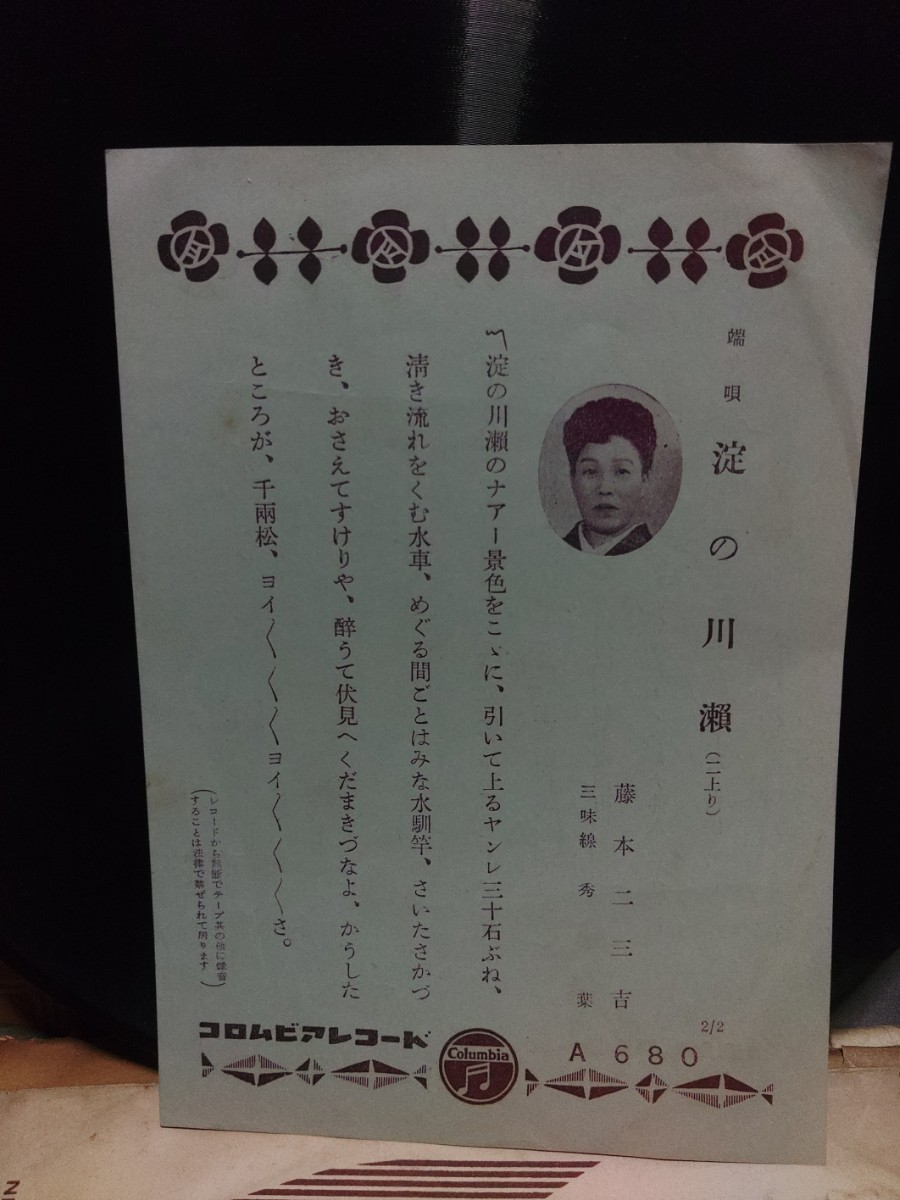 端唄 淀の川瀨(二上り)
藤本二三吉
三味線 秀葉
〽淀の川瀨のナアー景色をこゝに、引いて上るヤンレ三十石ぶね、
淸き流れをくむ水車、めぐる間ごとはみな水馴竿、さいたさかづ
き、おさえてすけりや、醉うて伏見へくだまきづなよ、かうした
ところが、千兩松、ヨイ〱〱〱ヨイ〱〱〱さ。
(レコードから無斷でテープ其の他に錄音
することは法律で禁ぜられて居ります)
2/2
A 680
コロムビアレコード
Columbia